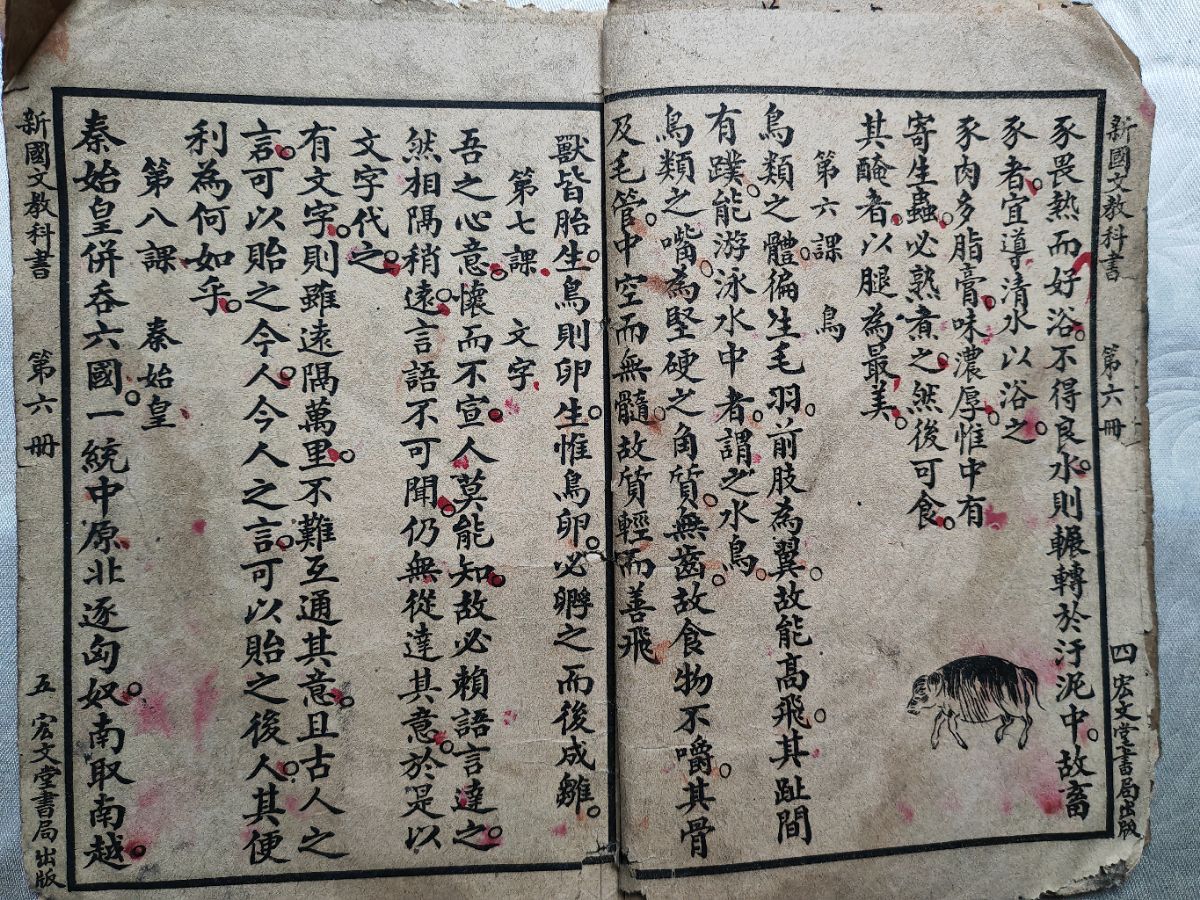 新國文教科書 第六冊 四 宏文堂書局出版
豕畏熱而好浴。不得良水。則輾轉於汙泥中。故畜
豕者。宜導清水以浴之。
豕肉多脂膏。味濃厚。惟中有
寄生蟲。必熟煮之。然後可食。
其醃者。以腿為最美。
第六課 鳥
鳥類之體。徧生毛羽。前肢為翼。故能高飛。其趾間
有蹼。能游泳水中者。謂之水鳥。
鳥類之嘴。為堅硬之角質。無齒。故食物不嚼。其骨
及毛管。中空而無髓。故質輕而善飛
獸皆胎生。鳥則卵生。惟鳥卵。必孵之而後成雛。
第七課 文字
吾之心意。懷而不宣。人莫能知。故必賴語言達之。
然相隔稍遠。言語不可聞。仍無從達其意。於是以
文字代之。
有文字。則雖遠隔萬里。不難互通其意。且古人之
言。可以貽之今人。今人之言。可以貽之後人。其便
利為何如乎。
第八課 秦始皇
秦始皇併吞六國。一統中原。北逐匈奴。南取南越。
新國文教科書 第六冊 五 宏文堂書局出版